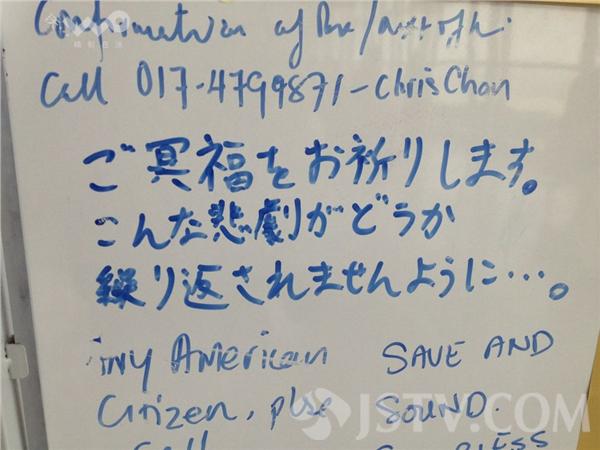 Confirmation of the
Call 017-4799871-Chris Chan
ご冥福をお祈りします。
こんな悲劇がどうか
繰り返されませんように…。
iny American
Citizen, plse
Call
SAVE AND
SOUND.
JSTV.COM